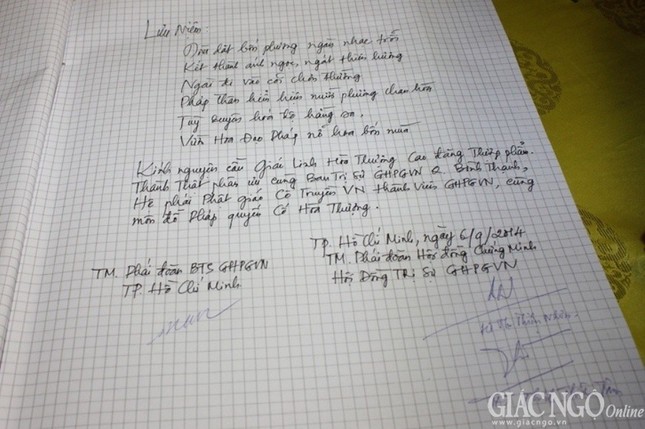 Lưu Niệm:
Đón bốn phương ngàn nhạc trỗi
Kết thành anh ngọc, ngát thiên hương
Ngài đi vào cõi chơn thường
Pháp thân hiển hiện
Tùy duyên hóa độ hằng sa.
Vườn Hoa Đạo Pháp nở hoa bốn mùa
Kính nguyện cầu Giác Linh Hòa Thượng Cao đăng Thượng phẩm.
Thành Thật phân ưu cùng Ban Trị Sự GHPGVN Q. Bình Thạnh,
Hệ phái Phật giáo Cổ Truyền VN thành viên GHPGVN, cùng
môn đồ Pháp quyến Cố Hòa Thượng.
TP. Hồ Chí Minh, ngày 6/9/2014
TM. Phái đoàn BTS GHPGVN
TP. Hồ Chí Minh
TM. Phái đoàn Hội đồng Chứng Minh
Hội Đồng Trị Sự GHPGVN
GIÁC NGỘ Online
www.giacngo.vn